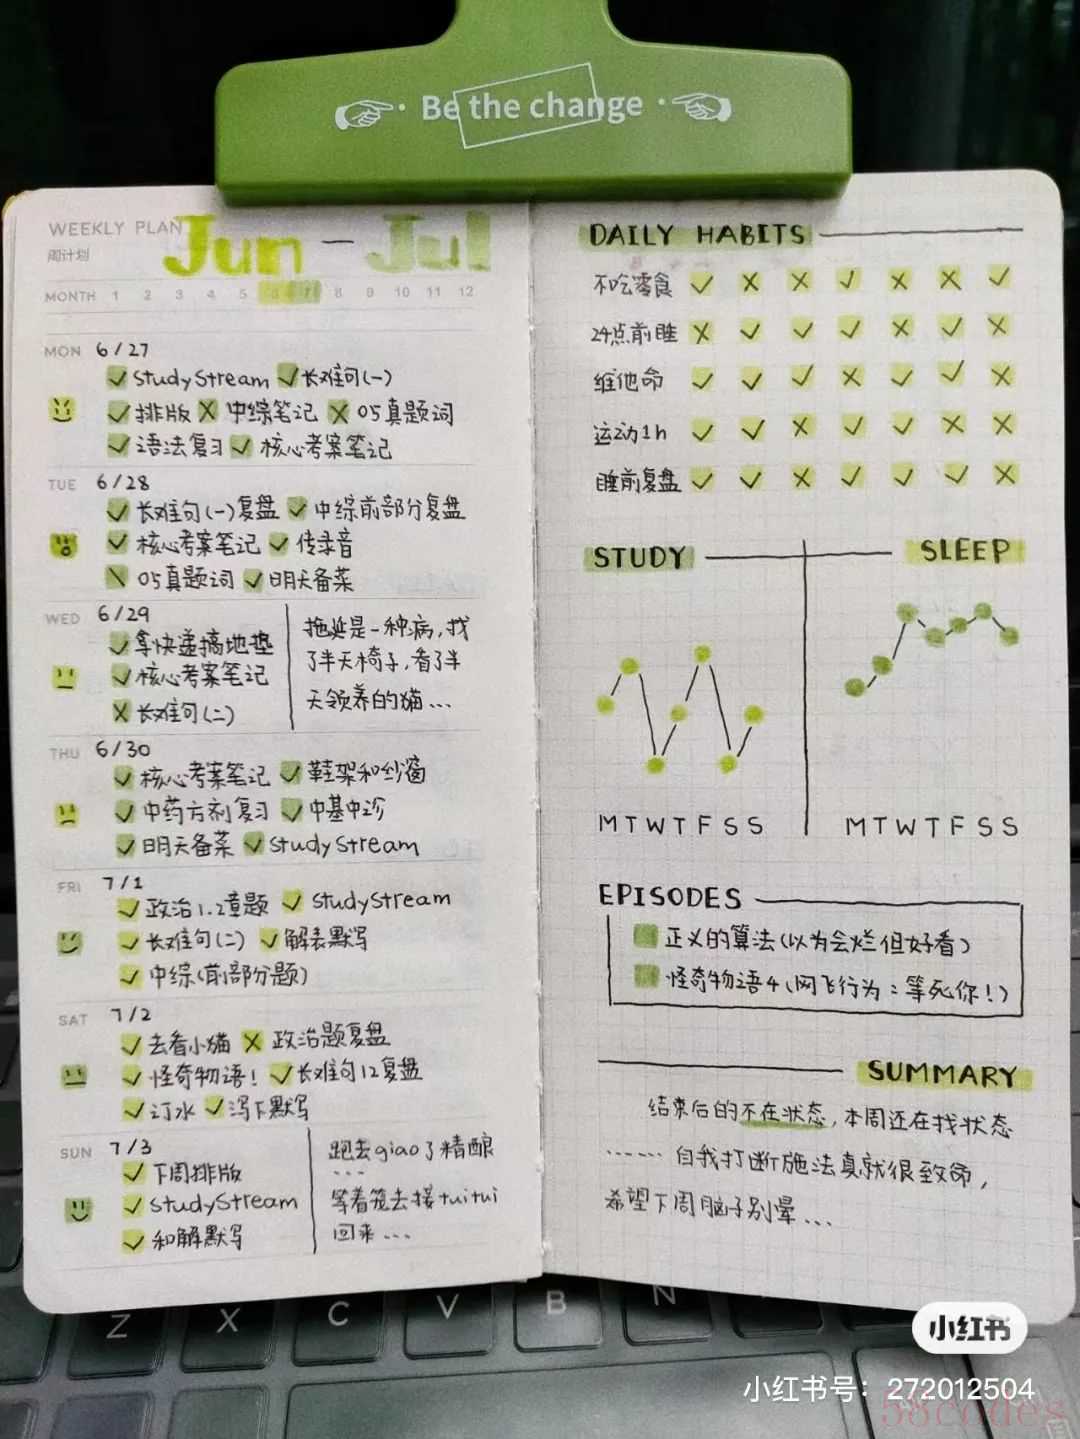 Be the change
WEEKLY PLAN
周计划
Jun — Jul
MONTH 1 2 3 4 5 6 7 8 9 10 11 12
MON 6/27
studyStream 长难句(一)
排版 中综笔记 05真题词
语法复习 核心考案笔记
TUE 6/28
长难句(一)复盘 中综前部分复盘
核心考案笔记 传录音
05真题词 明天备菜
WED 6/29
拿快递搞地垫
核心考案笔记
长难句(二)
拖延是一种病,找
了半天椅子,看了半
天领养的猫...
THU 6/30
核心考案笔记 鞋架和纱窗
中药方剂复习 中基中诊
明天备菜 studyStream
FRI 7/1
政治1.2章题 studyStream
长难句(二) 解表默写
中综(前部分题)
SAT 7/2
去看小猫 政治题复盘
怪奇物语! 长难句12复盘
订水 泻下默写
SUN 7/3
下周排版
studyStream
和解默写
跑去giao了精酿
....
等着笼去接tuitui
回来...
DAILY HABITS
不吃零食
24点前睡
维他命
运动1h
睡前复盘
STUDY
SLEEP
M T W T F S S
M T W T F S S
EPISODES
正义的算法(以为会烂但好看)
怪奇物语4(网飞行为:等死你!)
SUMMARY
结束后的不在状态,本周还在找状态
...... 自我打断施法真就很致命,
希望下周脑子别晕...
Z X C V B N
小红书
小红书号: 272012504
58codes